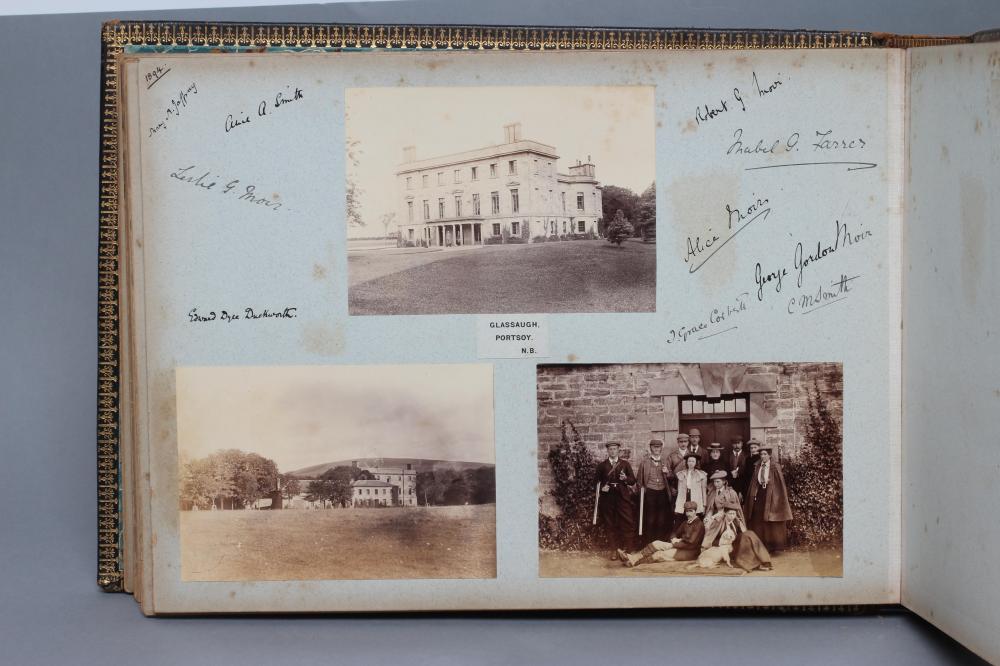 1894.
Alice A. Smith
Leslie G. Moir.
Edward Dyce Duckworth.
GLASSAUGH,
PORTSOY.
N.B.
Robert G. Moir.
Mabel G. Farrer
Alice Moir
George Gordon Moir
J. Grace Corbett
C M Smith